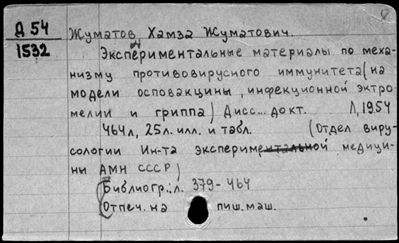 Д 54
1532
Жуматов, Хамза Жуматович.
Экспериментальные материалы по меха-
низму противовирусного иммунитета (на
модели осповакцины, инфекционной эктро-
мелии и гриппа) Дисс... докт. Л, 1954
464л, 25л. илл. и табл. (Отдел виру-
сологии Ин-та экспериментальной медици-
ны АМН СССР)
Библиогр.: л. 379-464
Отпеч. на пиш. маш.